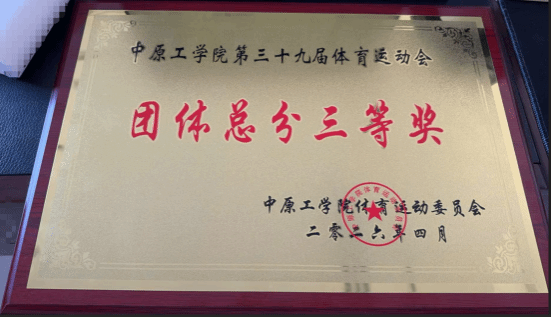 中原工学院第三十九届体育运动会
团体总分三等奖
中原工学院体育运动委员会
二零二六年四月